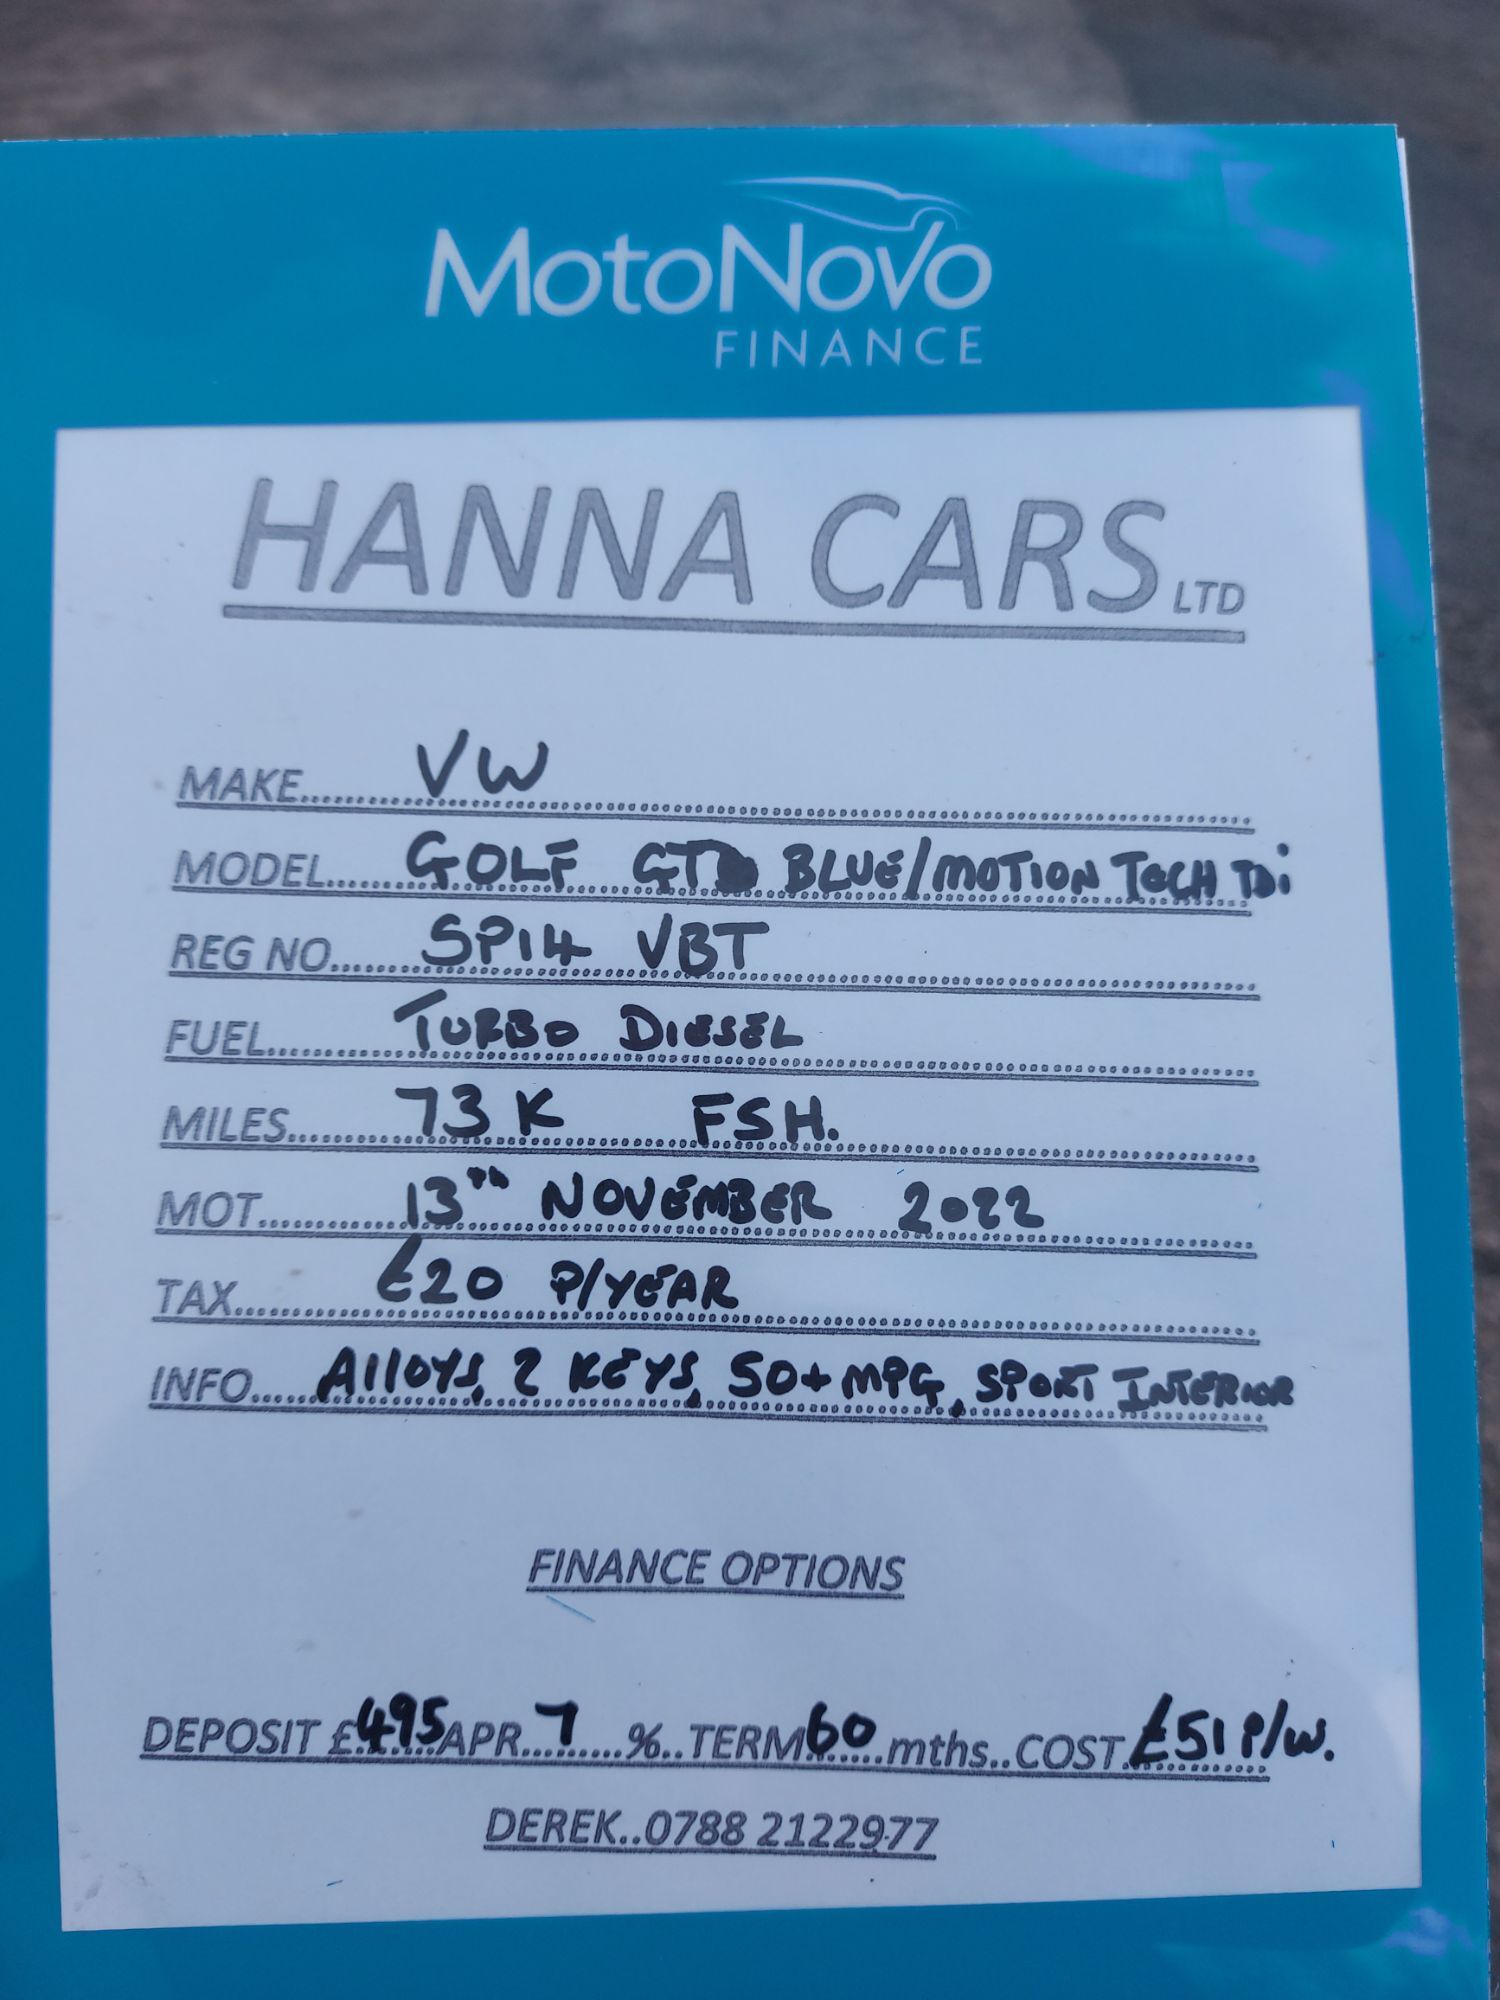 MotoNovo
FINANCE
HANNA CARS LTD
MAKE....... VW
MODEL....... GOLF GTD BLUE/MOTION TECH TDi
REG NO....... SP14 VBT
FUEL....... TURBO DIESEL
MILES....... 73K FSH.
MOT....... 13TH NOVEMBER 2022
TAX....... £20 P/YEAR
INFO....... Alloys, 2 KEYS, 50+ MPG, SPORT INTERIOR
FINANCE OPTIONS
DEPOSIT £495 APR..7..%..TERM 60 mths..COST £51 P/W.
DEREK..0788 2122977